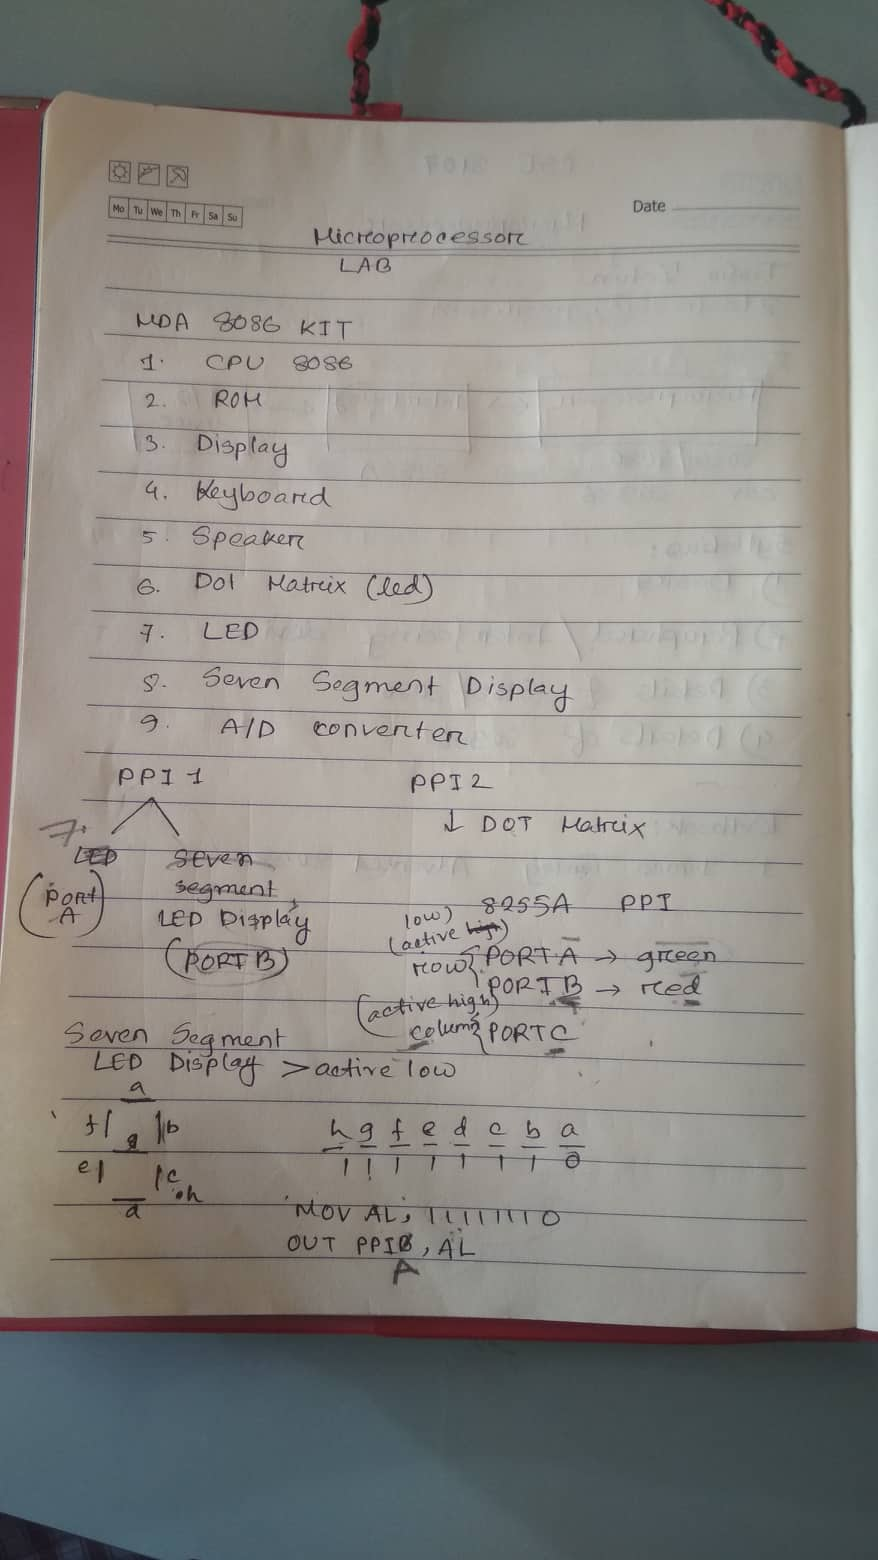 Mo Tu We Th Fr Sa Su
Date
Microprocessor
LAB
MDA 8086 KIT
1. CPU 8086
2. ROM
3. Display
4. Keyboard
5. Speaker
6. Dot Matrix (led)
7. LED
8. Seven Segment Display
9. A/D converter
PPI 1
PPI 2
↓ DOT Matrix
7.
LED
(PORT A)
Seven
segment
LED Display
(PORT B)
8255A PPI
low)
(active high)
row { PORT A → green
PORT B → red
(active high)
column { PORT C
Seven Segment
LED Display > active low
a
f b
g
e c
d .h
h g f e d c b a
1 1 1 1 1 1 1 0
MOV AL, 11111110
OUT PPIB, AL
A